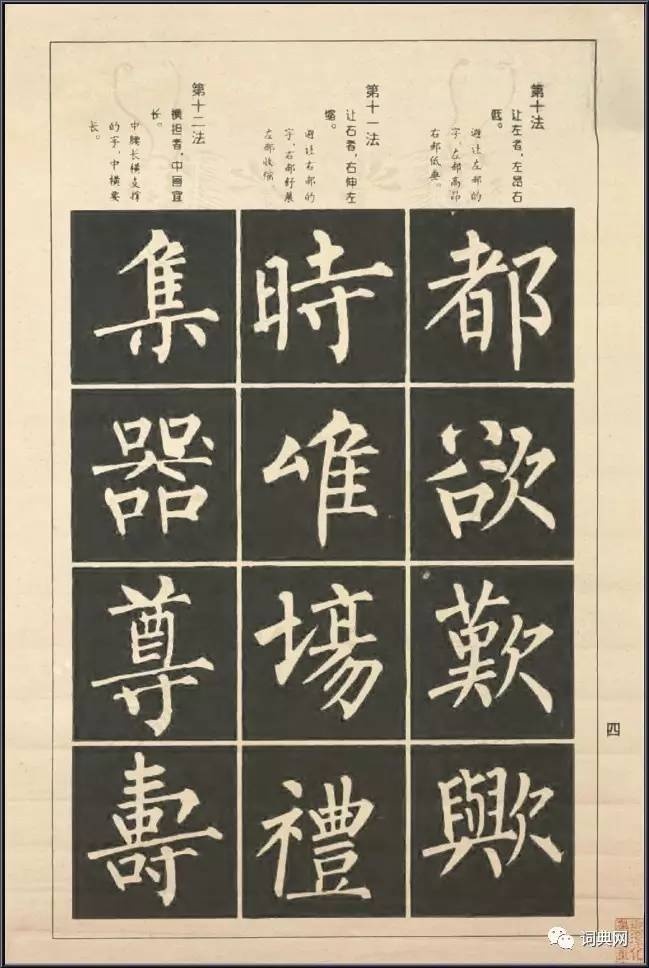 第十法
让左者，左昂右
低。
避让左部的
字，左部高昂
右部低垂。
都欲歎歟
第十一法
让右者，右伸左
缩。
避让右部的
字，右部舒展
左部收缩。
時唯場禮
第十二法
横担者，中画宜
长。
中腰长横支撑
的字，中横要
长。
集器尊壽
四
词典网